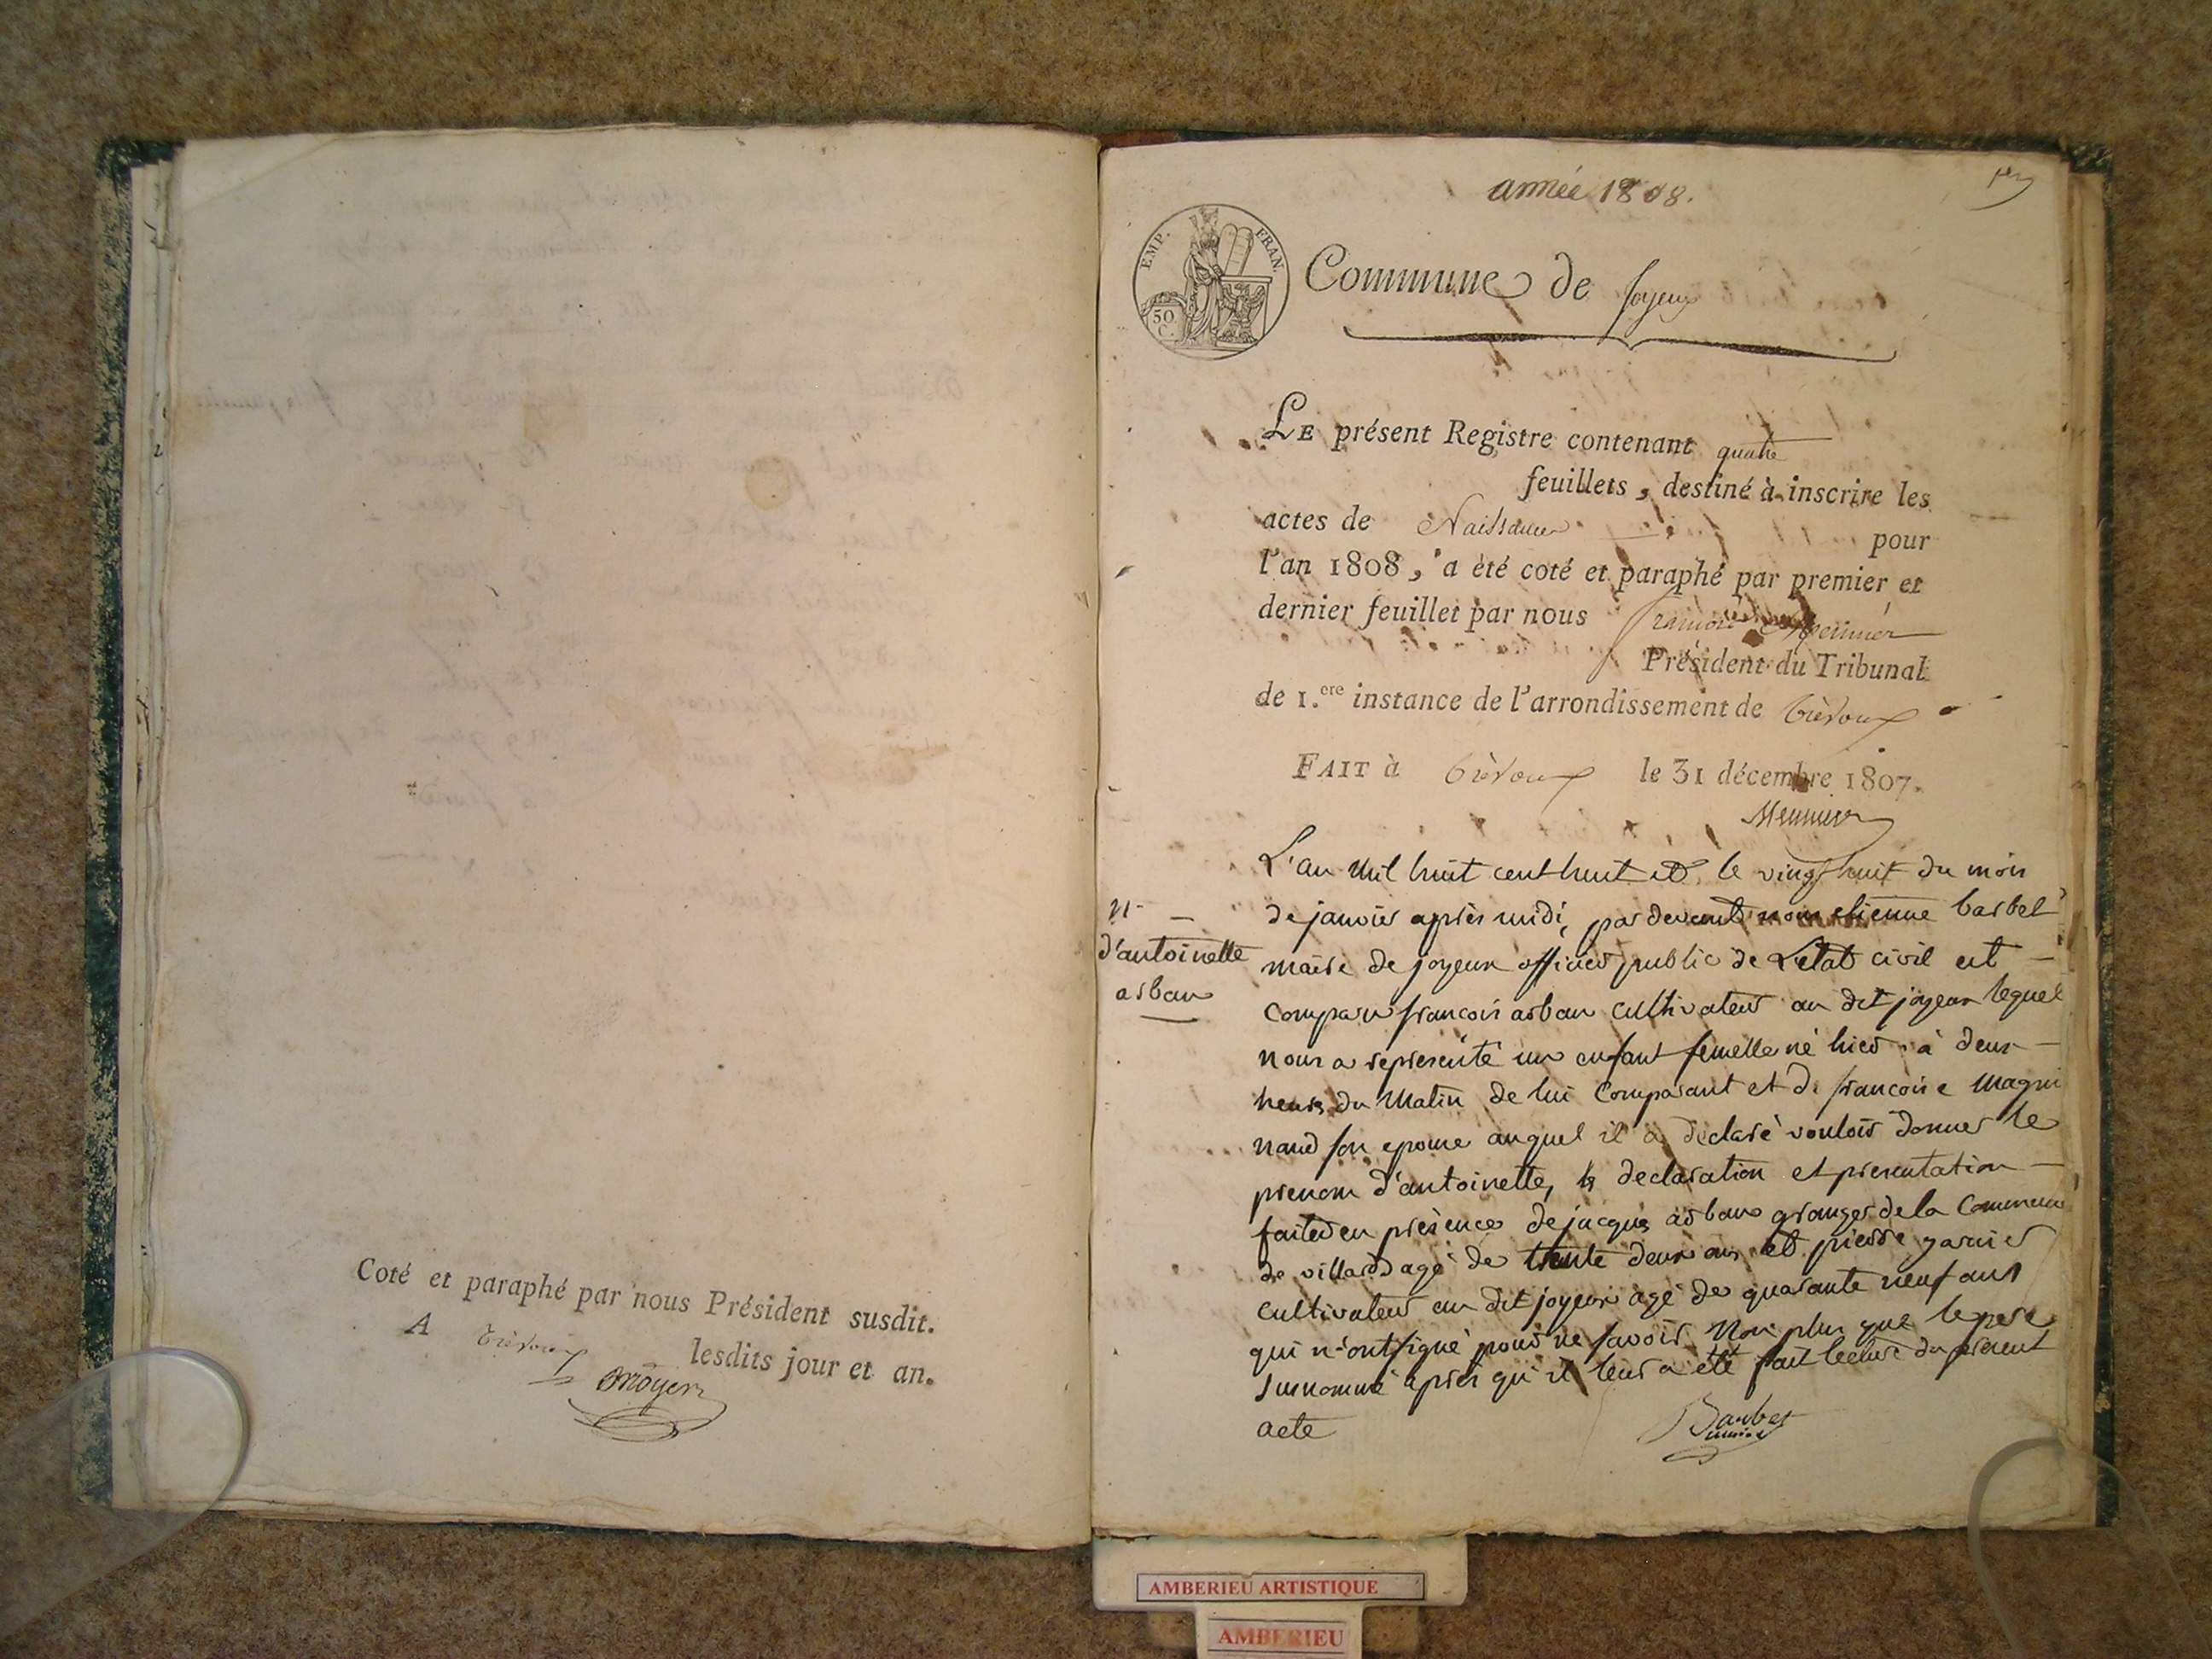 Coté et paraphé par nous Président susdit.
A Trévoux lesdits jour et an.
année 1808.
1er
EMP. FRAN.
50 C.
Commune de Joyeux
LE présent Registre contenant quatre
feuillets, destiné à inscrire les
actes de Naissance pour
l'an 1808, a été coté et paraphé par premier et
dernier feuillet par nous
Président du Tribunal
de 1.ere instance de l'arrondissement de Trévoux
FAIT à Trévoux le 31 décembre 1807.
Meunier
L'an mil huit cent huit et le vingt huit du mois
de janvier après midi, par devant nous etienne barbet
maire de joyeux officier public de L'etat civil est
comparu francois arban cultivateur au dit joyeux lequel
nous a representé un enfant femelle né hier à deux
heures du Matin de lui Comparant et de francoise Magni
naud son epouse auquel il a declaré vouloir donner le
prenom d'antoinette, declaration et presentation
faites en présence de jacques arban granger de la Commune
de villard agé de trente deux ans et pierre garnier
cultivateur au dit joyeux agé de quarante neuf ans
qui n'ont signé pour ne savoir Non plus que le pere
susnommé après qu'il leur a été fait lecture du present
acte
Barbet
maire
N
d'antoinette
arban
AMBERIEU ARTISTIQUE
AMBERIEU